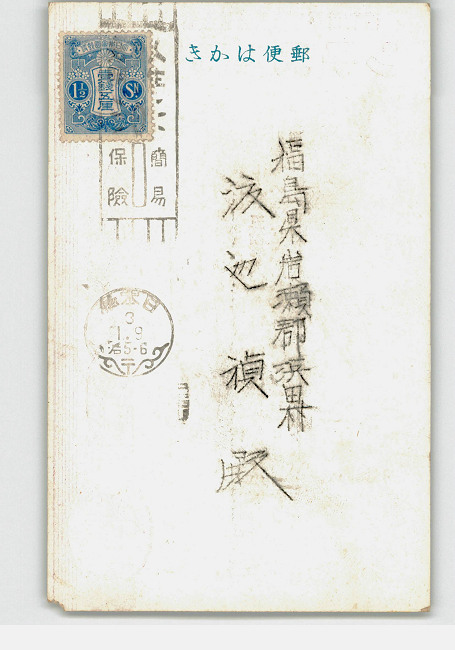 郵便はかき
1½ Sn
壹錢五厘
簡易
保險
福島県岩瀬郡浜田村
渡辺禎殿
日本橋
3
1.9
后5-6